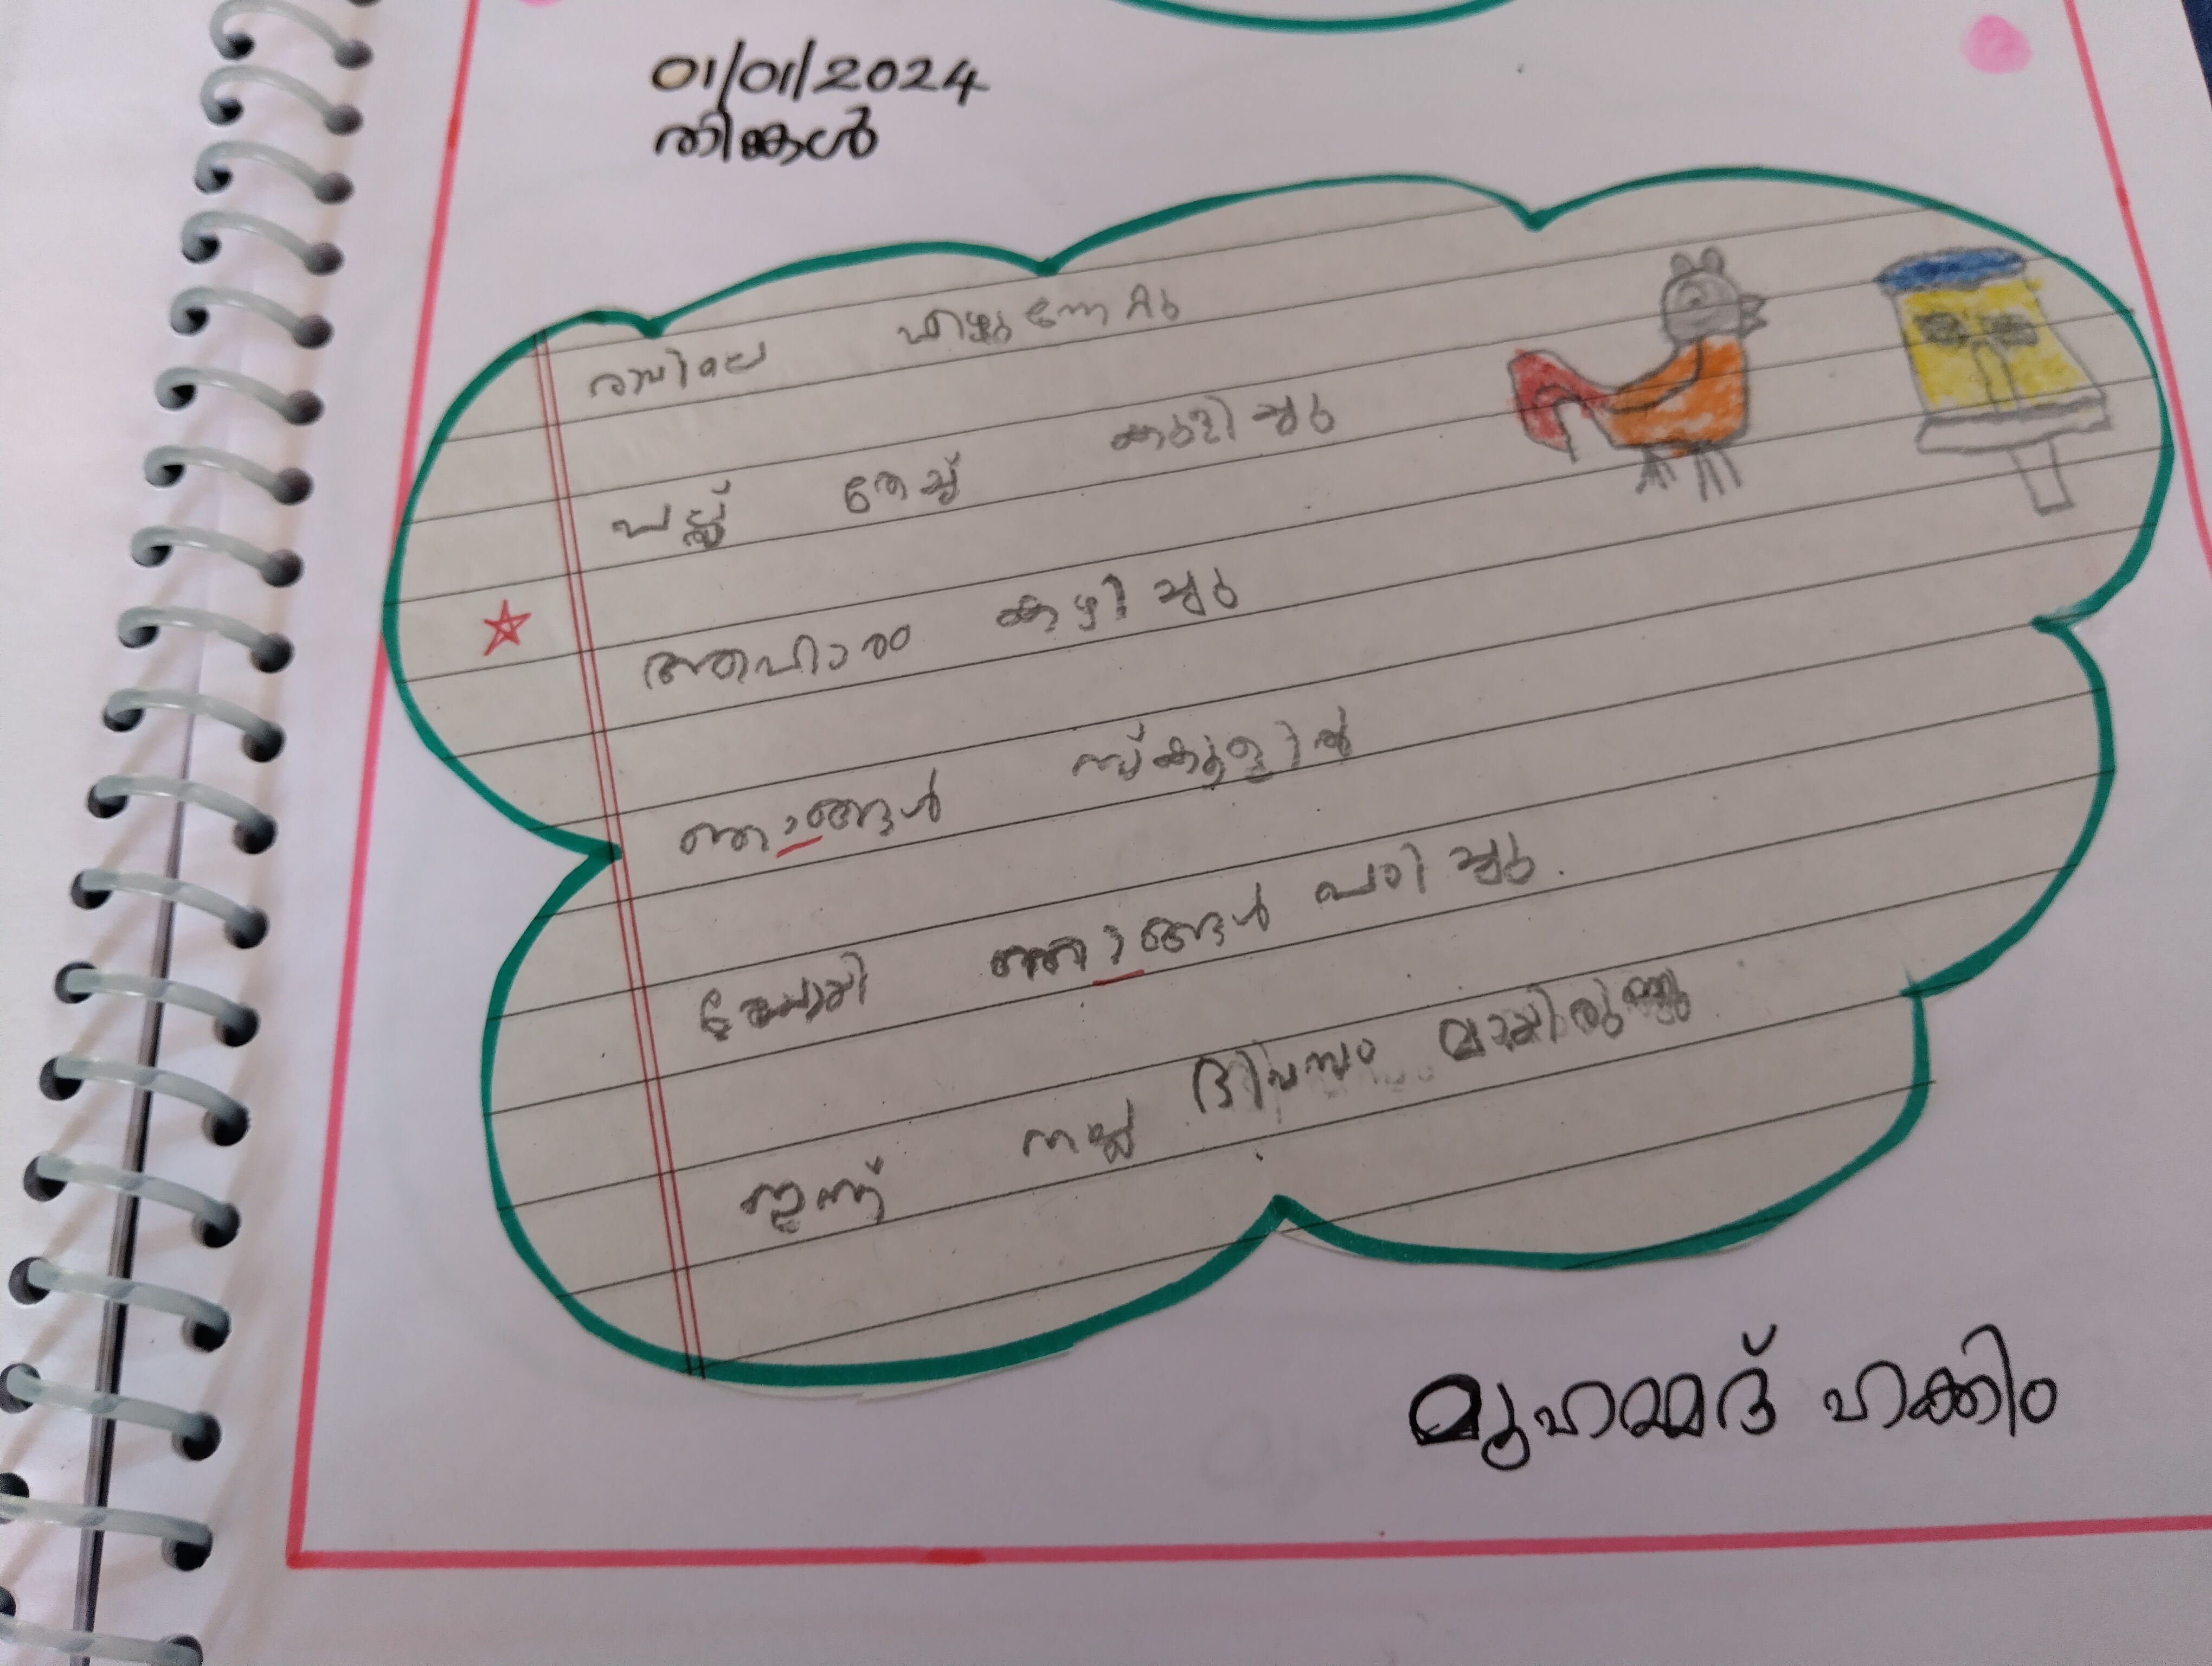 01/01/2024
തിങ്കൾ
രാവിലെ എഴുന്നേറ്റു
പല്ല് തേച്ച് കുളിച്ചു
ആഹാരം കഴിച്ചു
ഞാങ്ങൾ സ്കൂളിൽ
പോയി ഞാങ്ങൾ പഠിച്ചു.
ഇന്ന് നല്ല ദിവസം മായിരുന്നു
മുഹമ്മദ് ഹക്കിം